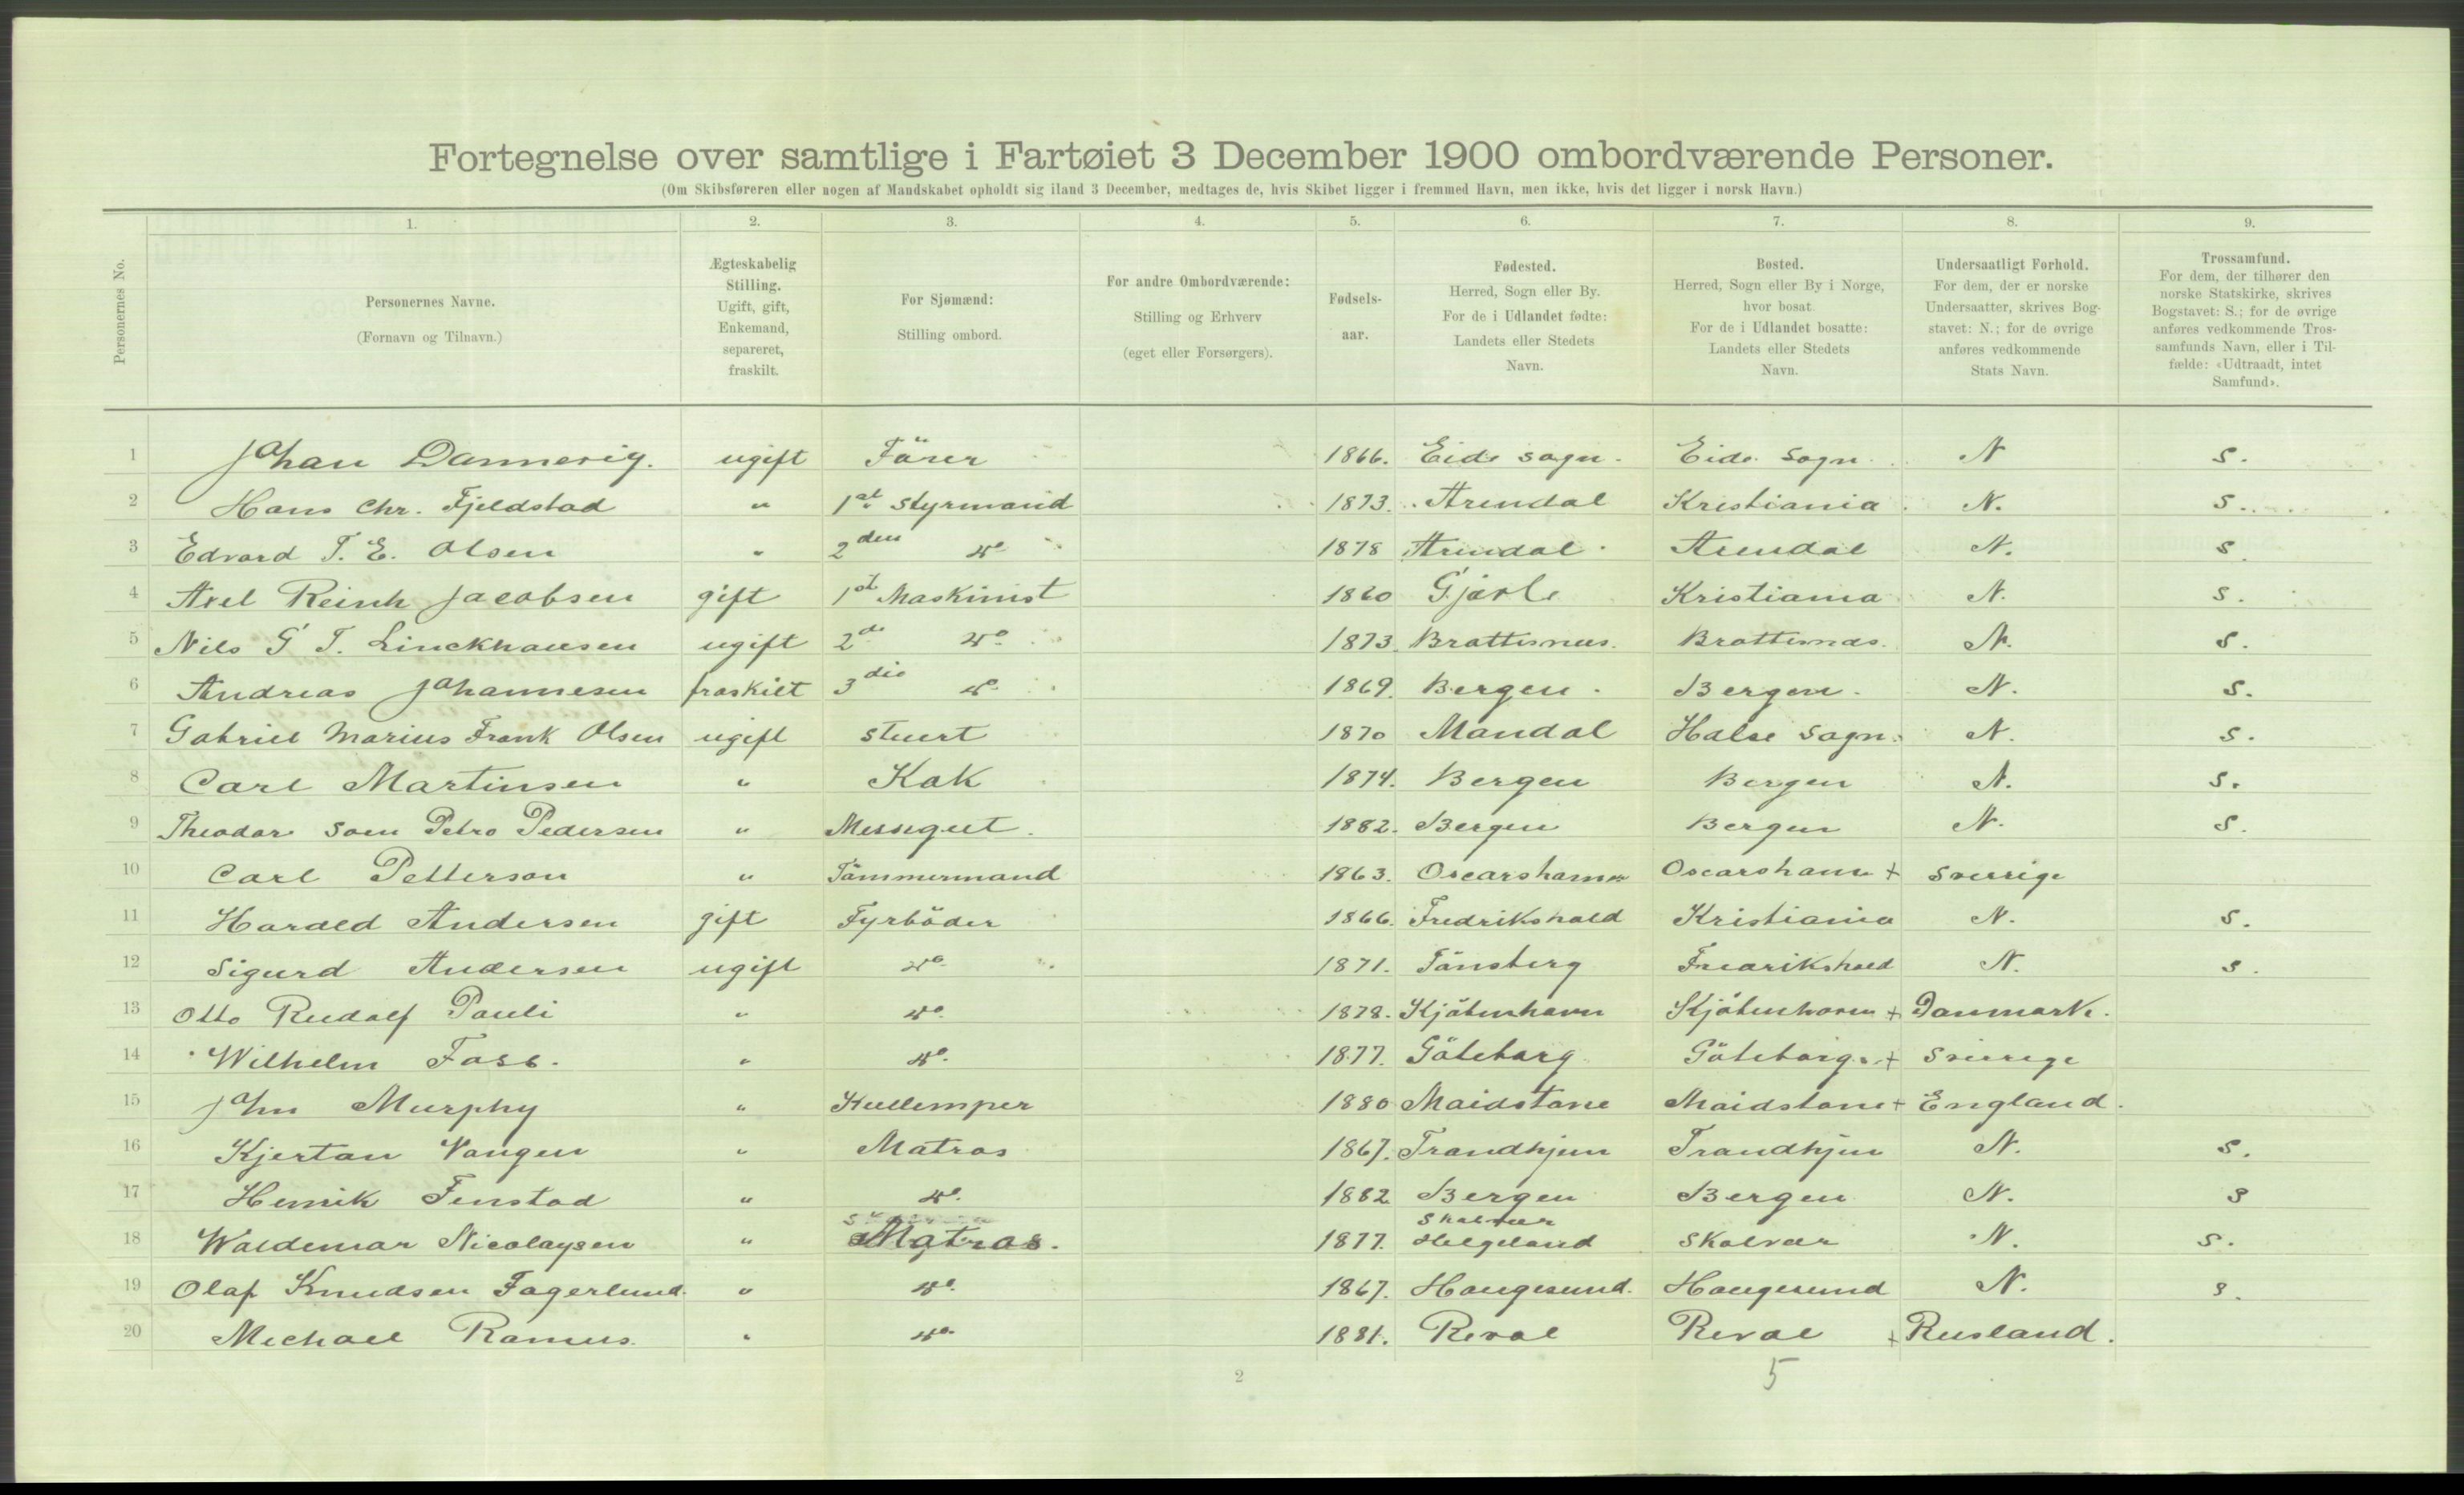 Fortegnelse over samtlige i Fartøiet 3 December 1900 ombordværende Personer.
(Om Skibsføreren eller nogen af Mandskabet opholdt sig iland 3 December, medtages de, hvis Skibet ligger i fremmed Havn, men ikke, hvis det ligger i norsk Havn.)
Personernes No.
1. 2. 3. 4. 5. 6. 7. 8. 9.
Personernes Navne.
(Fornavn og Tilnavn.)
Ægteskabelig
Stilling.
Ugift, gift,
Enkemand,
separeret,
fraskilt.
For Sjømænd:
Stilling ombord.
For andre Ombordværende:
Stilling og Erhverv
(eget eller Forsørgers).
Fødsels-
aar.
Fødested.
Herred, Sogn eller By.
For de i Udlandet fødte:
Landets eller Stedets
Navn.
Bosted.
Herred, Sogn eller By i Norge,
hvor bosat.
For de i Udlandet bosatte:
Landets eller Stedets
Navn.
Undersaatligt Forhold.
For dem, der er norske
Undersaatter, skrives Bog-
stavet: N.; for de øvrige
anføres vedkommende
Stats Navn.
Trossamfund.
For dem, der tilhører den
norske Statskirke, skrives
Bogstavet: S.; for de øvrige
anføres vedkommende Tros-
samfunds Navn, eller i Til-
fælde: «Udtraadt, intet
Samfund».
1 Johan Dannevig. ugift Förer 1866. Eide sogn. Eide Sogn. N S.
2 Hans Chr. Fjeldstad " 1st Styrmand 1873. Arendal Kristiania N. S.
3 Edvard T. E. Olsen " 2den do 1878 Arendal. Arendal N. S
4 Axel Reinh Jacobsen gift 1st Maskinist 1860 Kristiania N. S.
5 Nils G T. Linckhausen ugift 2d do 1873. Brattesnes. Brattesnæs. N. S.
6 Andreas Johannesen fraskilt 3die do 1869. Bergen. Bergen. N. S.
7 Gabriel Marius Frank Olsen ugift Stuert 1870 Mandal Halse Sogn. N. S.
8 Carl Martinsen " Kok 1874. Bergen Bergen N. S.
9 Theodor Petro Pedersen " Messegut. 1882. Bergen Bergen N. S.
10 Carl Petterson " Tömmermand 1863. Oscarshamn Oscarshamn + Sverrige
11 Harald Andersen gift Fyrböder 1866. Fredrikshald Kristiania N. S.
12 Sigurd Andersen ugift do 1871. Tönsberg Fredrikshald N. S.
13 Otto Rudolf Pauli " do. 1878. Kjöbenhavn Kjöbenhavn + Danmark.
14 Wilhelm " do. 1877. Göteborg Göteborg. + Sverrige
15 John Murphy " Kullemper 1880 Maidstone Maidstone + England.
16 Kjertan Vangen " Matros 1867. Trondhjem Trondhjem N. S.
17 Henrik Finstad " do. 1882 Bergen Bergen N. S
Skalvær
18 Waldemar Nicolaysen " Matros. 1877. Helgeland Skalvær N. S.
19 Olaf Knudsen Fagerlund. " do. 1867. Haugesund. Haugesund N. S.
20 Michael Ramus. " do. 1881. Reval Reval + Rusland.
2 5